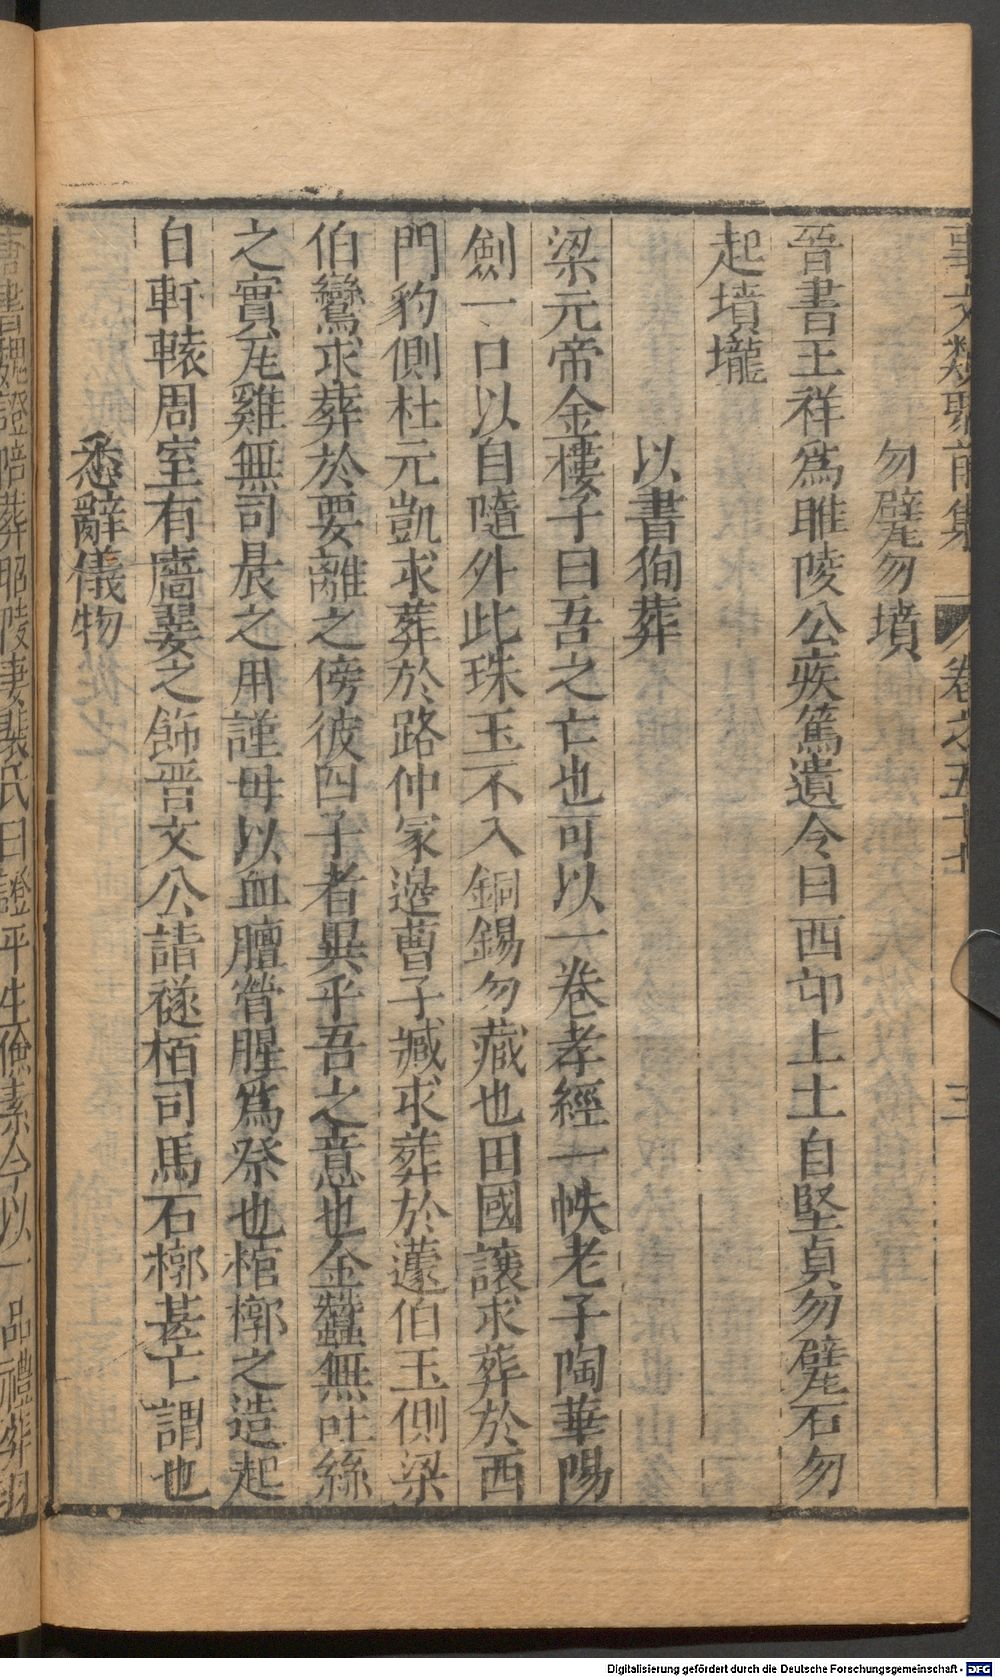 事文類聚前集 卷之五十七 三
勿甓勿墳
晉書王祥爲睢陵公疾篤遺令曰西卬上土自堅貞勿甓石勿
起墳壠
以書徇葬
梁元帝金樓子曰吾之亡也可以一卷孝經一帙老子陶華陽
劒一口以自隨外此珠玉不入銅錫勿藏也田國讓求葬於西
門豹側杜元凱求葬於路仲冢邊曹子臧求葬於蘧伯玉側梁
伯鸞求葬於要離之傍彼四子者異乎吾之意也金蠶無吐絲
之實瓦雞無司晨之用謹毋以血膻膋腥爲祭也棺槨之造起
自軒轅周室有牆翣之飾晋文公請襚栢司馬石槨甚亡謂也
悉辭儀物
唐書魏證陪葬昭陵妻裴氏曰證平生儉素今以一品禮葬羽
Digitalisierung gefördert durch die Deutsche Forschungsgemeinschaft - DFG